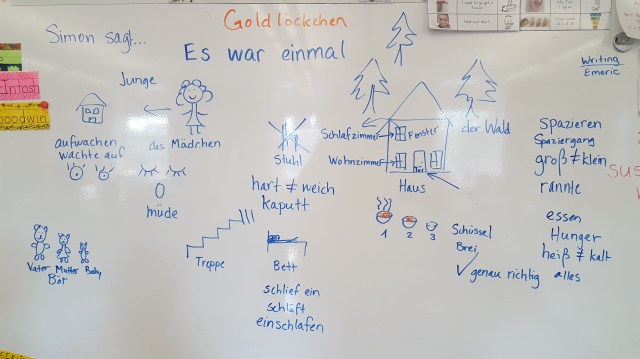 Goldlöckchen
Simon sagt...
Es war einmal
Writing
Emeric
Junge
das Mädchen
aufwachen
wachte auf
müde
Vater Mutter Baby
Bär
Treppe
Stuhl
hart ≠ weich
kaputt
Bett
schlief ein
schläft
einschlafen
Schlafzimmer
Fenster
Wohnzimmer
Tür
Haus
der Wald
1 2 3
Schüssel
Brei
✓ genau richtig
Spazieren
Spaziergang
groß ≠ klein
rannte
essen
Hunger
heiß ≠ kalt
alles
Intosh
oodwin
sus